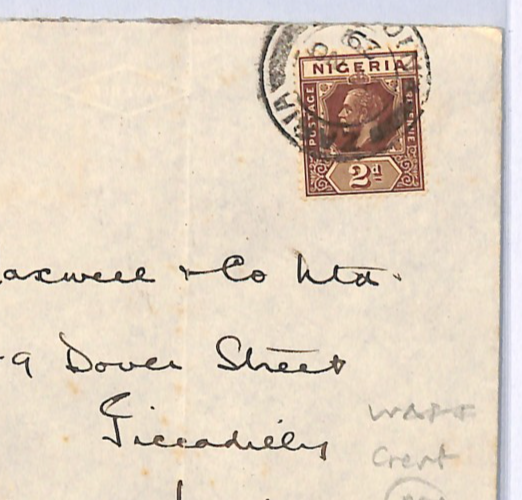 NIGERIA
POSTAGE
2d
axwell & Co Ltd.
9 Dover Street
Piccadilly
Crest